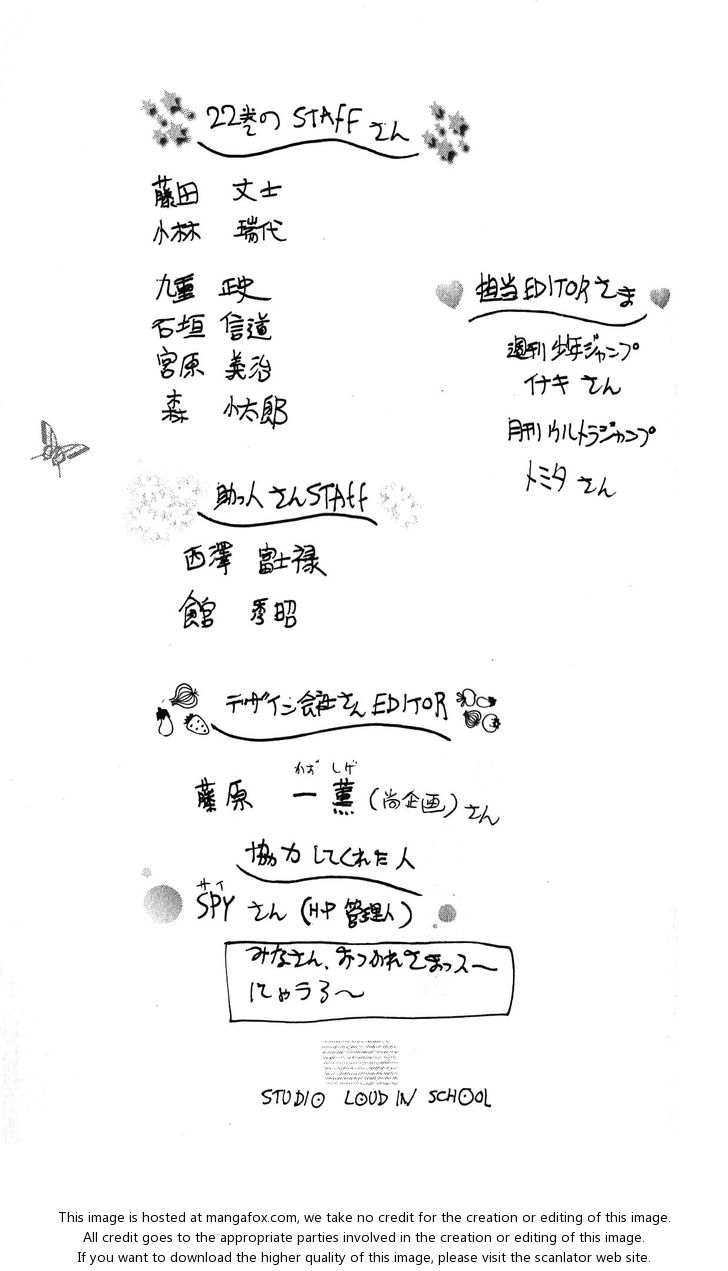 22巻の STAFF さん
藤田 丈士
小林 瑞代
九重 政史
石垣 信道
宮原 義治
森 小太郎
担当EDITORさま
週刊少年ジャンプ
イナキ さん
月刊ウルトラジャンプ
トミタ さん
助っ人さんSTAFF
西澤 富士禄
館 秀昭
デザイン会社さんEDITOR
かず しげ
藤原 一薫 (尚企画) さん
協力してくれた人
サイ
SPY さん (HP 管理人)
みなさん、おつかれさまっス〜
にゅうろ〜
STUDIO LOUD IN SCHOOL
This image is hosted at mangafox.com, we take no credit for the creation or editing of this image.
All credit goes to the appropriate parties involved in the creation or editing of this image.
If you want to download the higher quality of this image, please visit the scanlator web site.